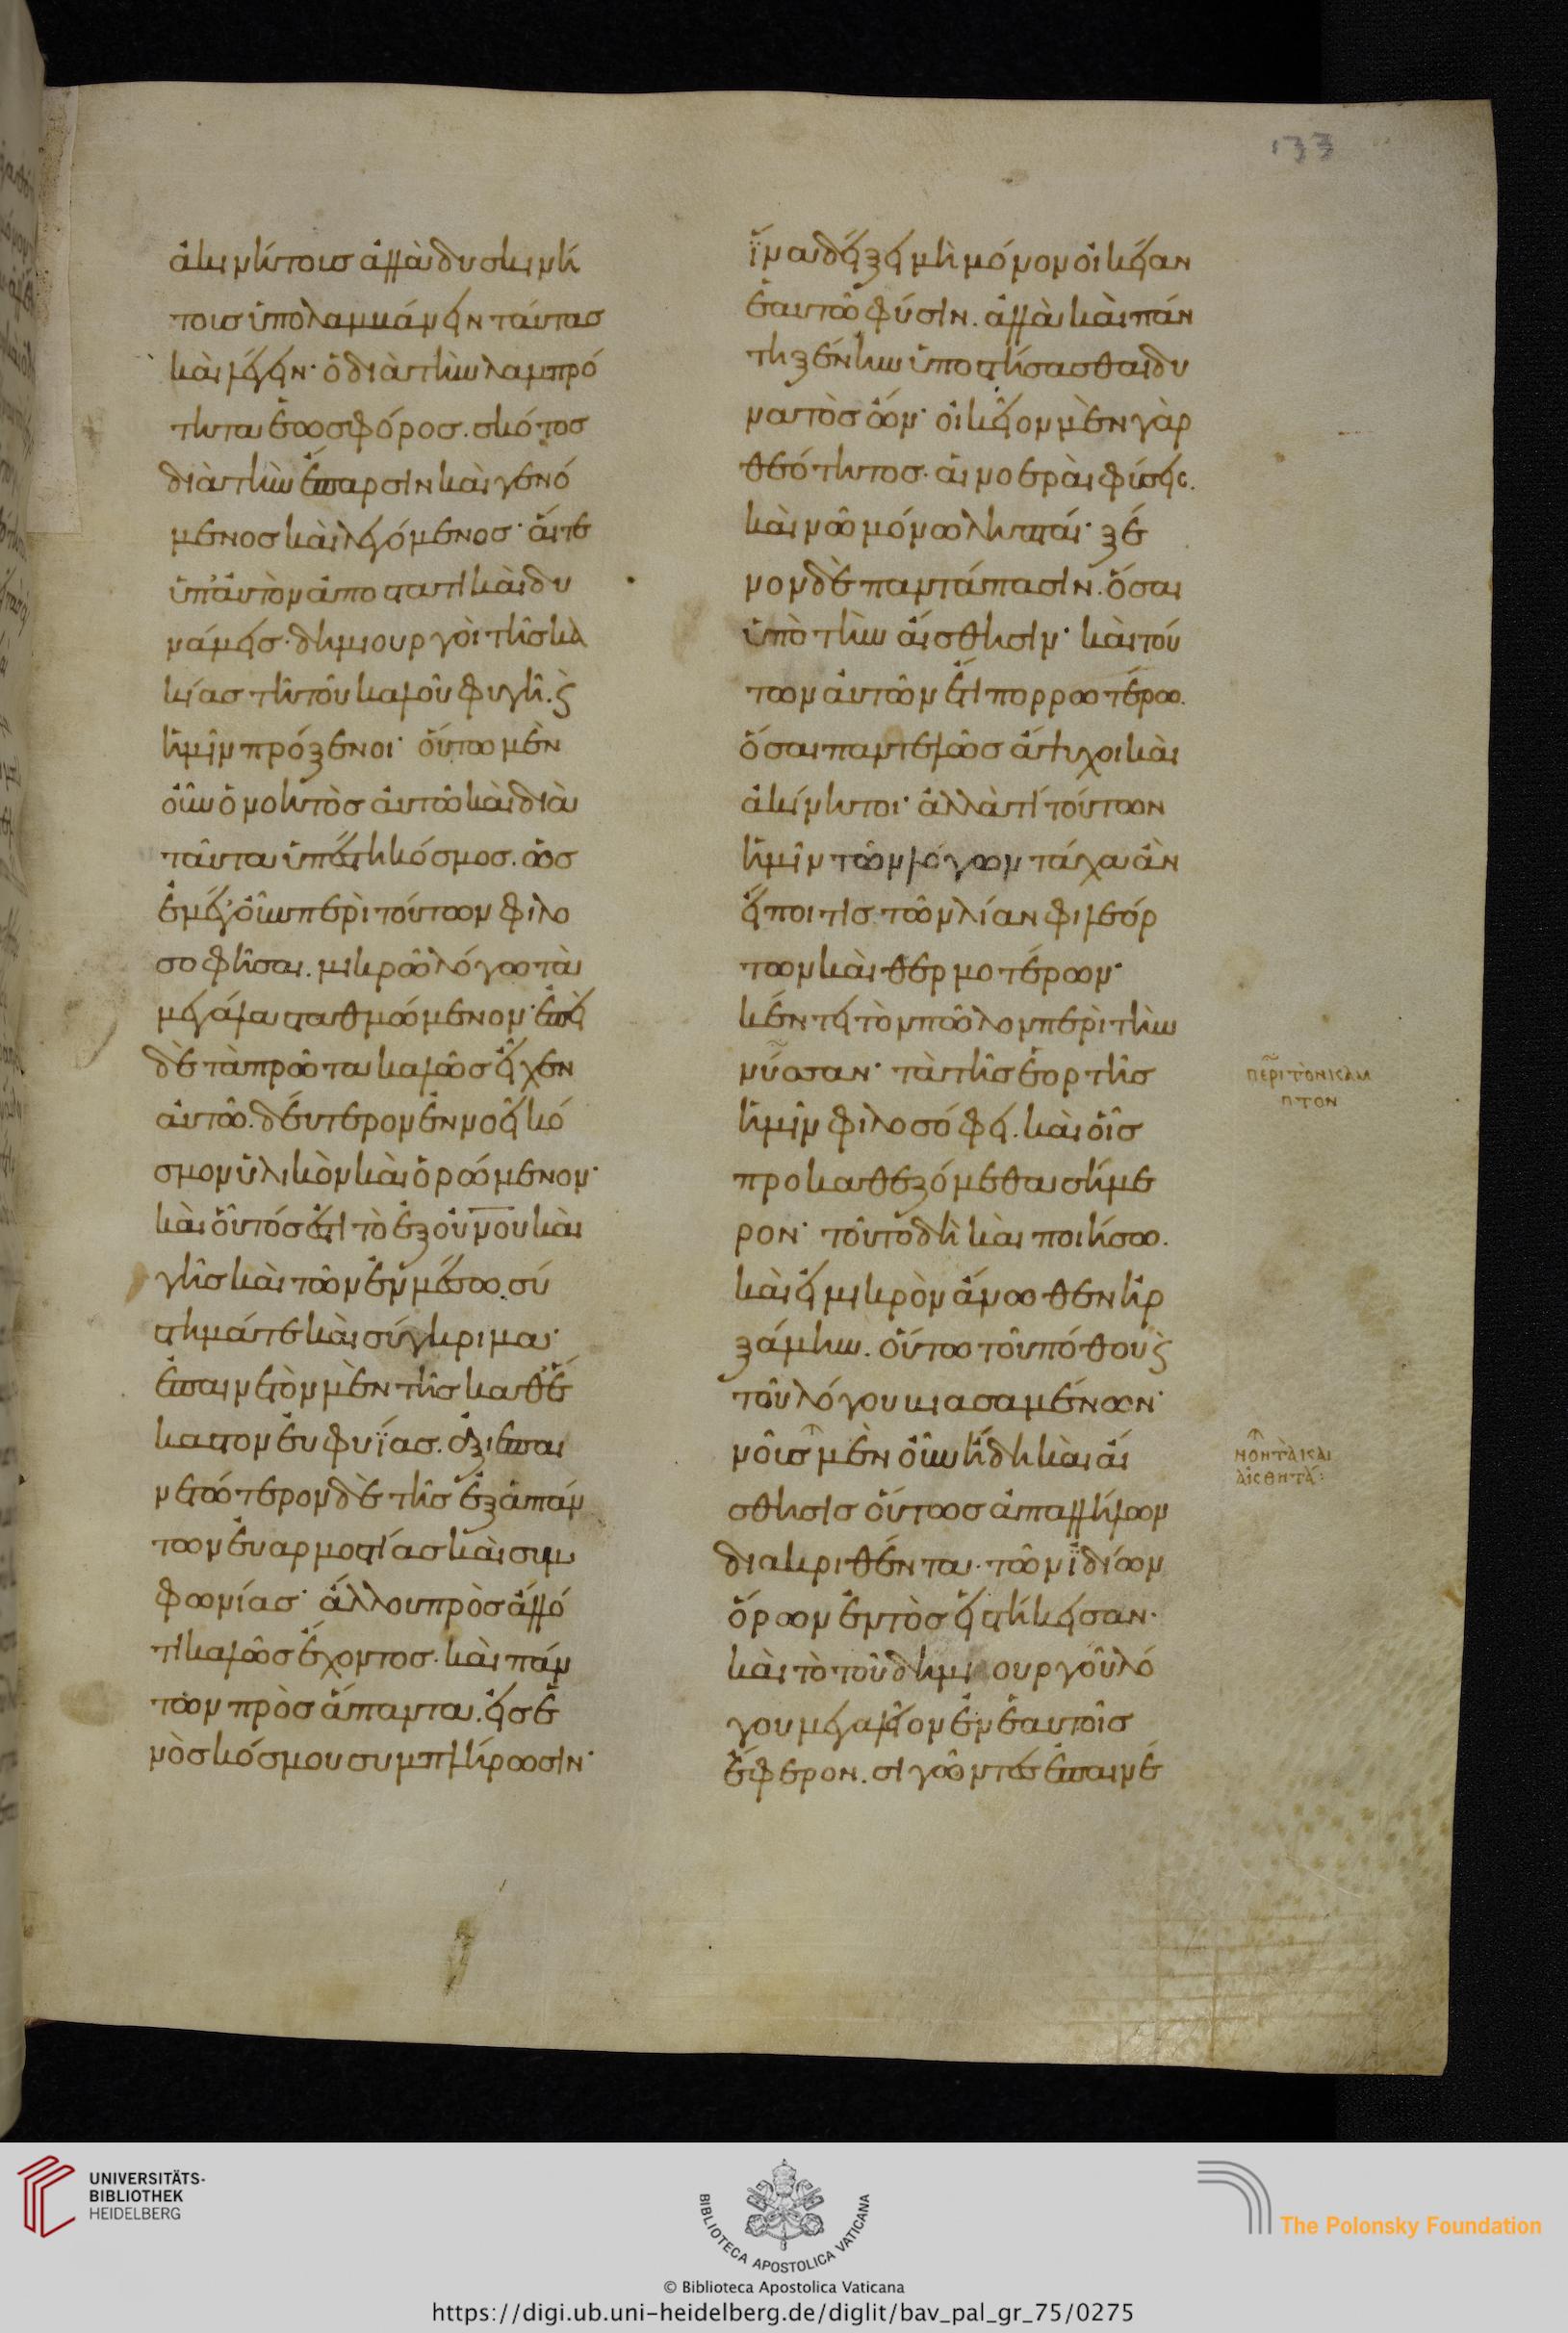 133
ἀκινήτοις ἀλλὰ δυσκινή
τοις ὑπολαμβάνειν ταύτας
καὶ λέγειν· ὁ διὰ τὴν λαμπρό
τητα ἑωσφόρος. σκότος
διὰ τὴν ἔπαρσιν καὶ γενό
μενος καὶ λεγόμενος· αἵ τε
ὑπ' αὐτὸν ἀποστατικαὶ δυ
νάμεις. δημιουργοὶ τῆς κα
κίας τῆ τοῦ καλοῦ φυγῆ. ϗ
ἡμῖν πρόξενοι· οὕτω μὲν
οὖν ὁ νοητὸς αὐτῶ καὶ διὰ
ταῦτα ὑπέστη κόσμος. ὡς
ἐμὲ γ' οὖν περὶ τούτων φιλο
σοφῆσαι. μικρῶ λόγω τὰ
μεγάλα σταθμώμενον· ἐπεὶ
δὲ τὰ πρῶτα καλῶς εἶχεν
αὐτῶ. δεύτερον ἐννοεῖ κό
σμον ὑλικὸν καὶ ὁρώμενον·
καὶ οὗτός ἐστι τὸ ἐξ οὐνου καὶ
γῆς καὶ τῶν ἐν μέσω. σύ
στημά τε καὶ σύγκριμα·
ἐπαινετὸν μὲν τῆς καθ' ἕ
καστον εὐφυΐας. ἀξιεπαι
νετώτερον δὲ τῆς ἐξ ἁπάν
των εὐαρμοστίας καὶ συμ
φωνίας· ἄλλου πρὸς ἄλλό
τι καλῶς ἔχοντος. καὶ πάν
των πρὸς ἅπαντα. εἰς ἑ
νὸς κόσμου συμπλήρωσιν·
ἵνα δείξει μὴ μόνον οἰκείαν
ἑαυτῶ φύσιν. ἀλλὰ καὶ πάν
τη ξένην ὑποστήσασθαι δυ
νατὸς ὤν· οἰκεῖον μὲν γὰρ
θεότητος. αἱ νοεραὶ φύσεις.
καὶ νῶ μόνω ληπταί· ξέ
νον δὲ παντάπασιν. ὅσαι
ὑπὸ τὴν αἴσθησιν· καὶ τού
των αὐτῶν ἔτι πορρωτέρω.
ὅσαι παντελῶς ἄψυχοι καὶ
ἀκίνητοι· ἀλλὰ τί τούτων
ἡμῖν τῶν λόγων τάχα ἂν
εἴποι τις τῶν λίαν φιλεόρ
των καὶ θερμοτέρων·
κέντει τὸν πῶλον περὶ τὴν
νύσσαν· τὰ τῆς ἑορτῆς
ἡμῖν φιλοσόφει. καὶ οἷς
προκαθεζόμεθα σήμε
ρον· τοῦτο δὴ καὶ ποιήσω.
καὶ εἰ μικρὸν ἄνωθεν ἠρ
ξάμην. οὕτω τοῦ πόθου ϗ
τοῦ λόγου βιασαμένων·
νοῦς μὲν οὖν ἤδη καὶ αἴ
σθησις οὕτως ἀπαλλήλων
διακριθέντα. τῶν ἰδίων
ὅρων ἐντὸς εἱστήκεισαν.
καὶ τὸ τοῦ δημιουργοῦ λό
γου μεγαλεῖον ἐν ἑαυτοῖς
ἔφερον. σιγῶντες ἐπαινέ
περὶ τὸν καμ
πτον
νοητὰ καὶ
αἰσθητά:
UNIVERSITÄTS-
BIBLIOTHEK
HEIDELBERG
BIBLIOTECA APOSTOLICA VATICANA
© Biblioteca Apostolica Vaticana
The Polonsky Foundation
https://digi.ub.uni-heidelberg.de/diglit/bav_pal_gr_75/0275